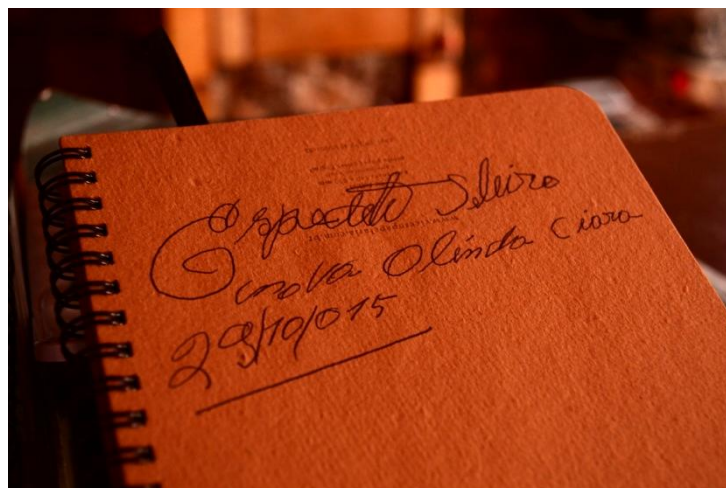 Espedito Seleiro
nova Olinda Ciara
29/10/015